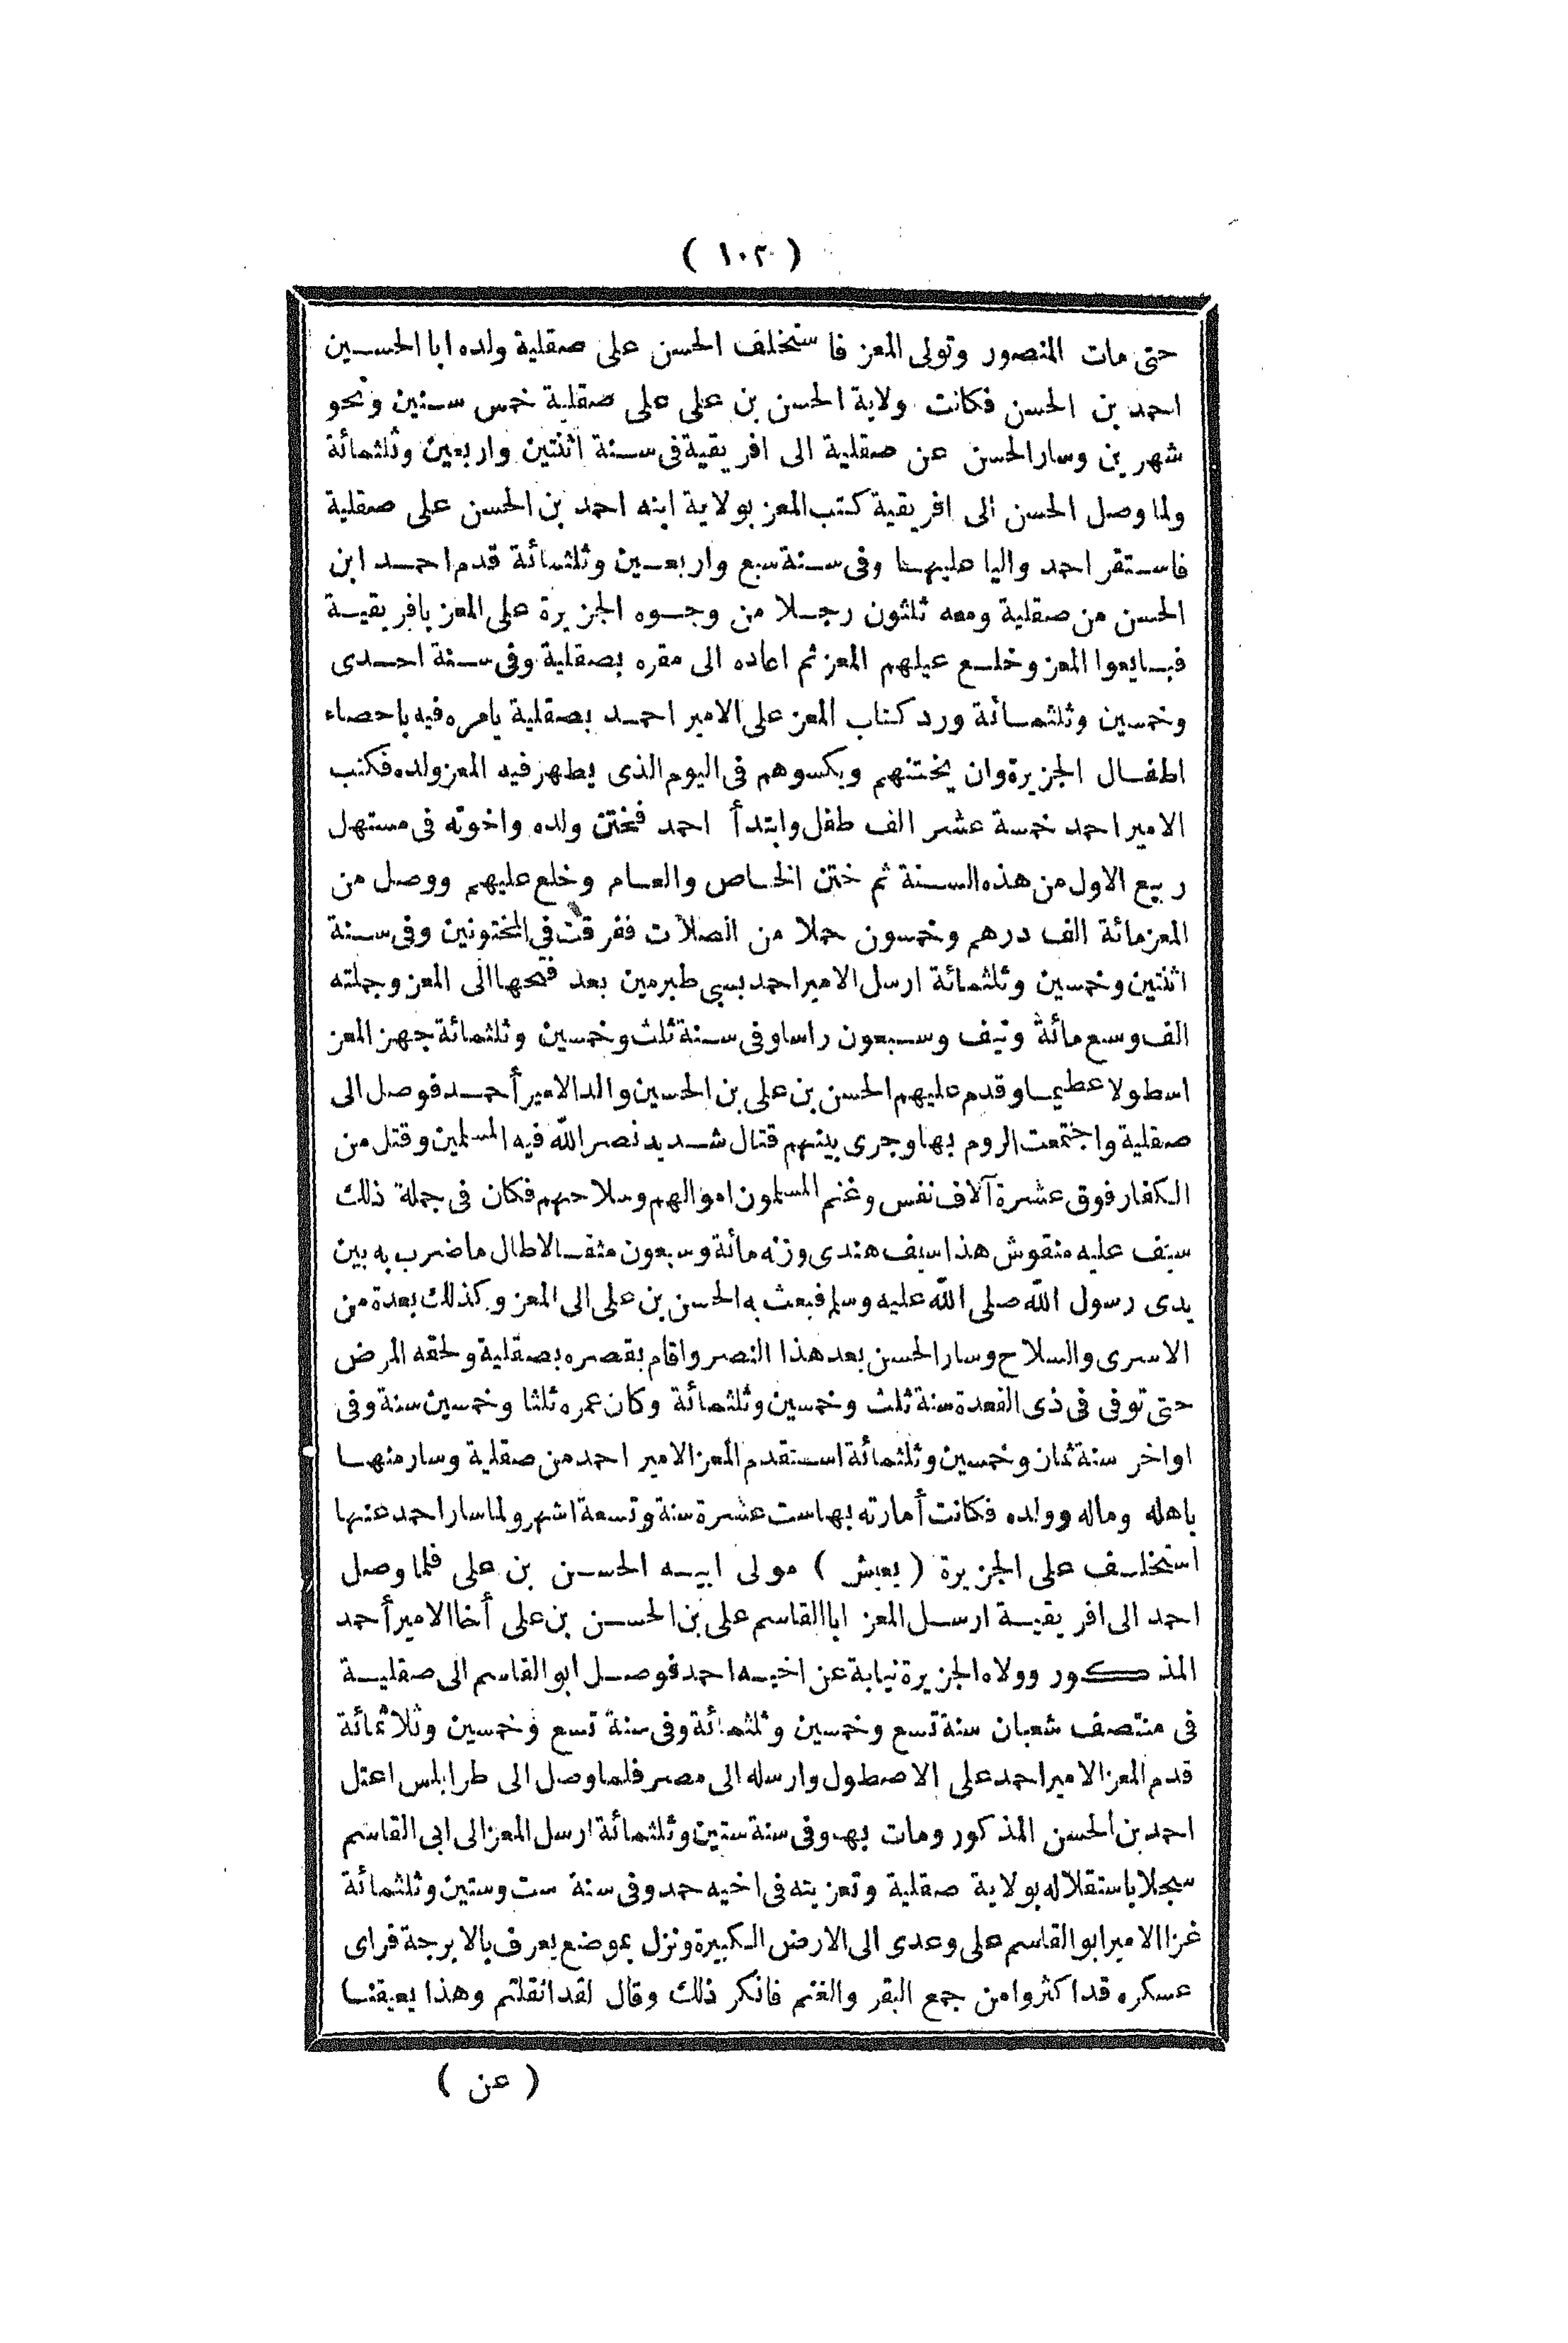 ( ١٠٢ )
حتى مات المنصور وتولى المعز فاستخلف الحسن على صقلية ولده ابا الحسين
احمد بن الحسن فكانت ولاية الحسن بن على على صقلية خمس سنين ونحو
شهرين وسار الحسن عن صقلية الى افريقية فى سنة اثنتين واربعين وثلثمائة
ولما وصل الحسن الى افريقية كتب المعز بولاية ابنه احمد بن الحسن على صقلية
فاستقر احمد واليا عليها وفى سنة سبع واربعين وثلثمائة قدم احمد ابن
الحسن من صقلية ومعه ثلثون رجلا من وجوه الجزيرة على المعز بافريقية
فبايعوا المعز وخلع عيلهم المعز ثم اعاده الى مقره بصقلية وفى سنة احدى
وخمسين وثلثمائة ورد كتاب المعز على الامير احمد بصقلية يامره فيه باحصاء
اطفال الجزيرة وان يختنهم ويكسوهم فى اليوم الذى يطهر فيه المعز ولده فكتب
الامير احمد خمسة عشر الف طفل وابتدأ احمد فختن ولده واخوته فى مستهل
ربيع الاول من هذه السنة ثم ختن الخاص والعام وخلع عليهم ووصل من
المعز مائة الف درهم وخمسون حملا من الصلات ففرقت في المختونين وفى سنة
اثنتين وخمسين وثلثمائة ارسل الامير احمد بسبى طبرمين بعد فتحها الى المعز وجملته
الف وسبع مائة ونيف وسبعون راسا وفى سنة ثلث وخمسين وثلثمائة جهز المعز
اسطولا عظيما وقدم عليهم الحسن بن على بن الحسين والد الامير أحمد فوصل الى
صقلية واجتمعت الروم بها وجرى بينهم قتال شديد نصر الله فيه المسلمين وقتل من
الكفار فوق عشرة آلاف نفس وغنم المسلمون اموالهم وسلاحهم فكان فى جملة ذلك
سيف عليه منقوش هذا سيف هندى وزنه مائة وسبعون مثقالا طال ما ضرب به بين
يدى رسول الله صلى الله عليه وسلم فبعث به الحسن بن على الى المعز وكذلك بعدة من
الاسرى والسلاح وسار الحسن بعد هذا النصر واقام بقصره بصقلية ولحقه المرض
حتى توفى فى ذى القعدة سنة ثلث وخمسين وثلثمائة وكان عمره ثلثا وخمسين سنة وفى
اواخر سنة ثمان وخمسين وثلثمائة استقدم المعز الامير احمد من صقلية وسار منها
باهله وماله وولده فكانت أمارته بها ست عشرة سنة وتسعة اشهر ولما سار احمد عنها
استخلف على الجزيرة ( يعيش ) مولى ابيه الحسن بن على فلما وصل
احمد الى افريقية ارسل المعز ابا القاسم على بن الحسن بن على أخا الامير أحمد
المذكور وولاه الجزيرة نيابة عن اخيه احمد فوصل ابو القاسم الى صقلية
فى منتصف شعبان سنة تسع وخمسين وثلثمائة وفى سنة تسع وخمسين وثلاثمائة
قدم المعز الامير احمد على الاصطول وارسله الى مصر فلما وصل الى طرابلس اعتل
احمد بن الحسن المذكور ومات بها وفى سنة ستين وثلثمائة ارسل المعز الى ابى القاسم
سجلا باستقلاله بولاية صقلية وتعزيته فى اخيه حمد وفى سنة ست وستين وثلثمائة
غزا الامير ابو القاسم على وعدى الى الارض الكبيرة ونزل بموضع يعرف بالابرجة فراى
عسكره قد اكثروا من جمع البقر والغنم فانكر ذلك وقال لقد اثقلتم وهذا يعيقنا
( عن )